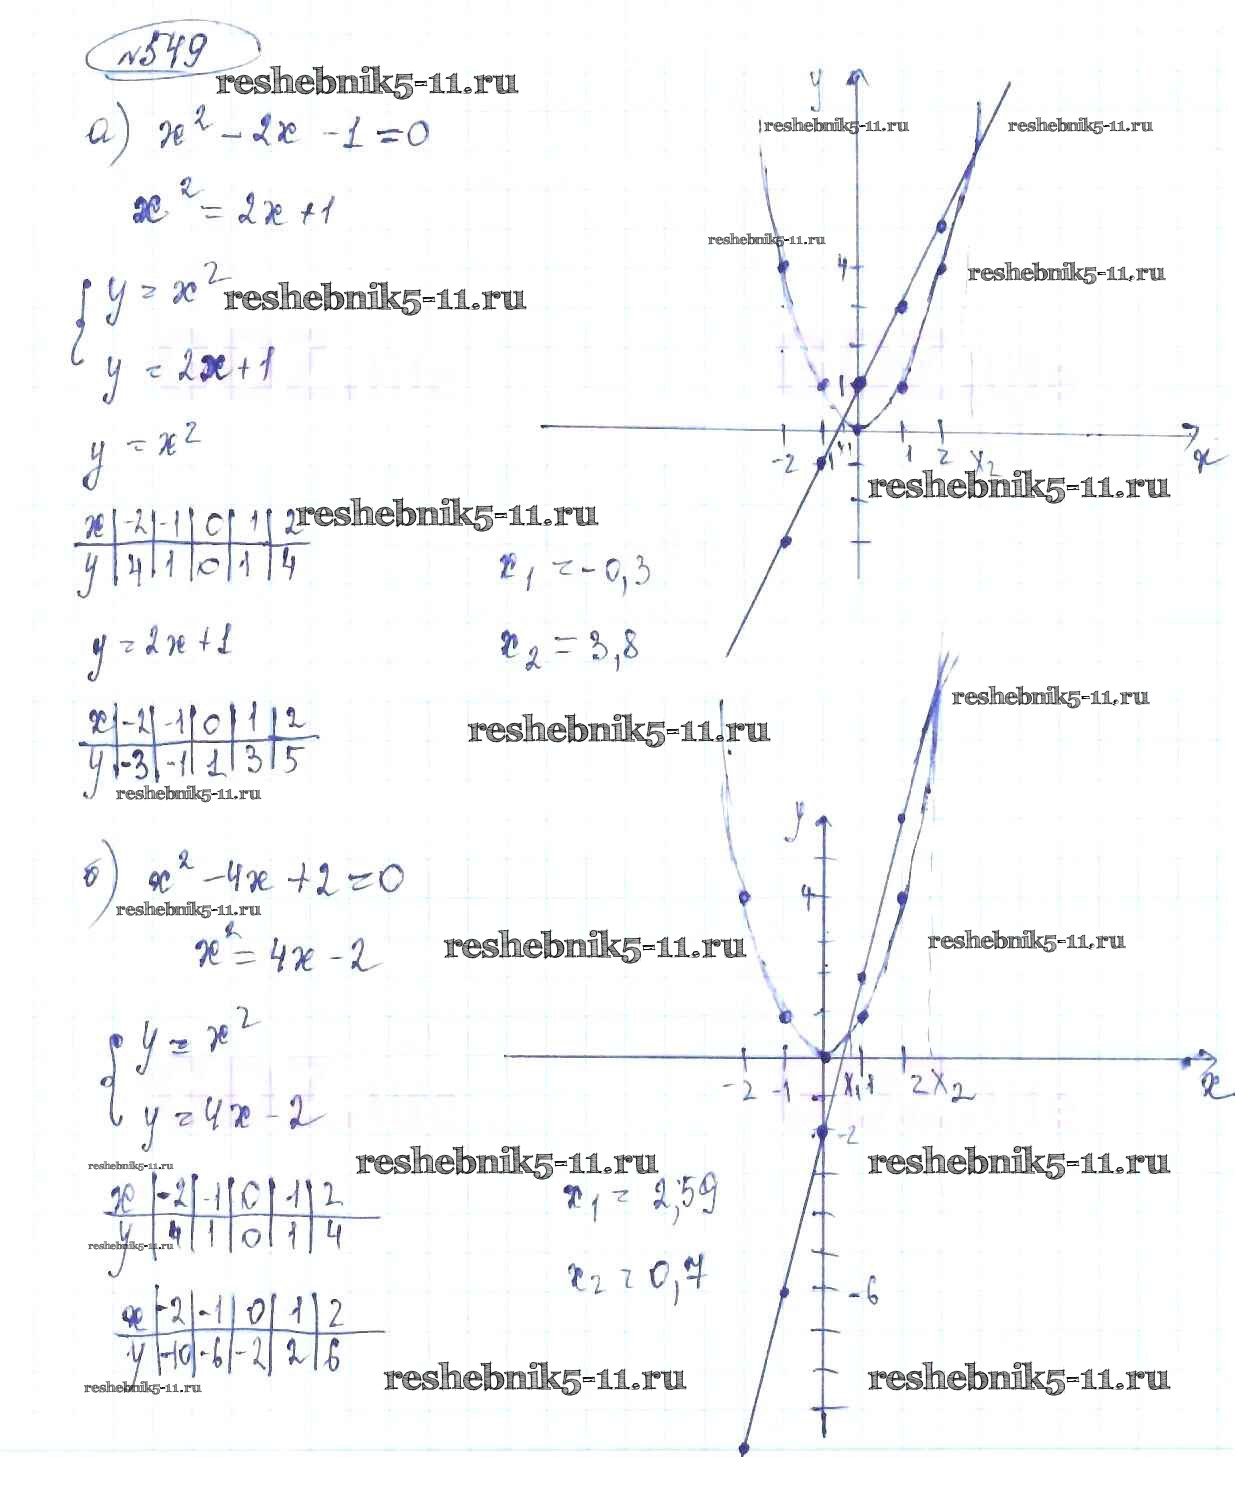 №549
reshebnik5-11.ru
а) x² - 2x - 1 = 0
x² = 2x + 1
y = x²
reshebnik5-11.ru
y = 2x + 1
y = x²
x -2 -1 0 1 2
reshebnik5-11.ru
y 4 1 0 1 4
y = 2x + 1
x -2 -1 0 1 2
y -3 -1 1 3 5
reshebnik5-11.ru
y
reshebnik5-11.ru
reshebnik5-11.ru
reshebnik5-11.ru
4
reshebnik5-11.ru
1
-2 -1 1 2 x₂
x
reshebnik5-11.ru
x₁ = -0,3
x₂ = 3,8
reshebnik5-11.ru
reshebnik5-11.ru
б) x² - 4x + 2 = 0
reshebnik5-11.ru
x² = 4x - 2
reshebnik5-11.ru
y = x²
y = 4x - 2
reshebnik5-11.ru
x -2 -1 0 1 2
y 4 1 0 1 4
reshebnik5-11.ru
x -2 -1 0 1 2
y -10 -6 -2 2 6
reshebnik5-11.ru
y
4
reshebnik5-11.ru
-2 -1 x₁ 1 2 x₂
x
-2
reshebnik5-11.ru
reshebnik5-11.ru
x₁ = 2,59
x₂ = 0,7
-6
reshebnik5-11.ru
reshebnik5-11.ru